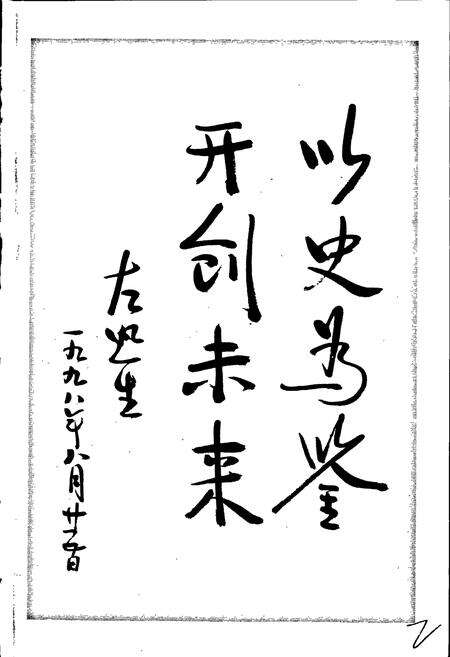 以史为鉴
开创未来
左生
一九九八年八月廿五日